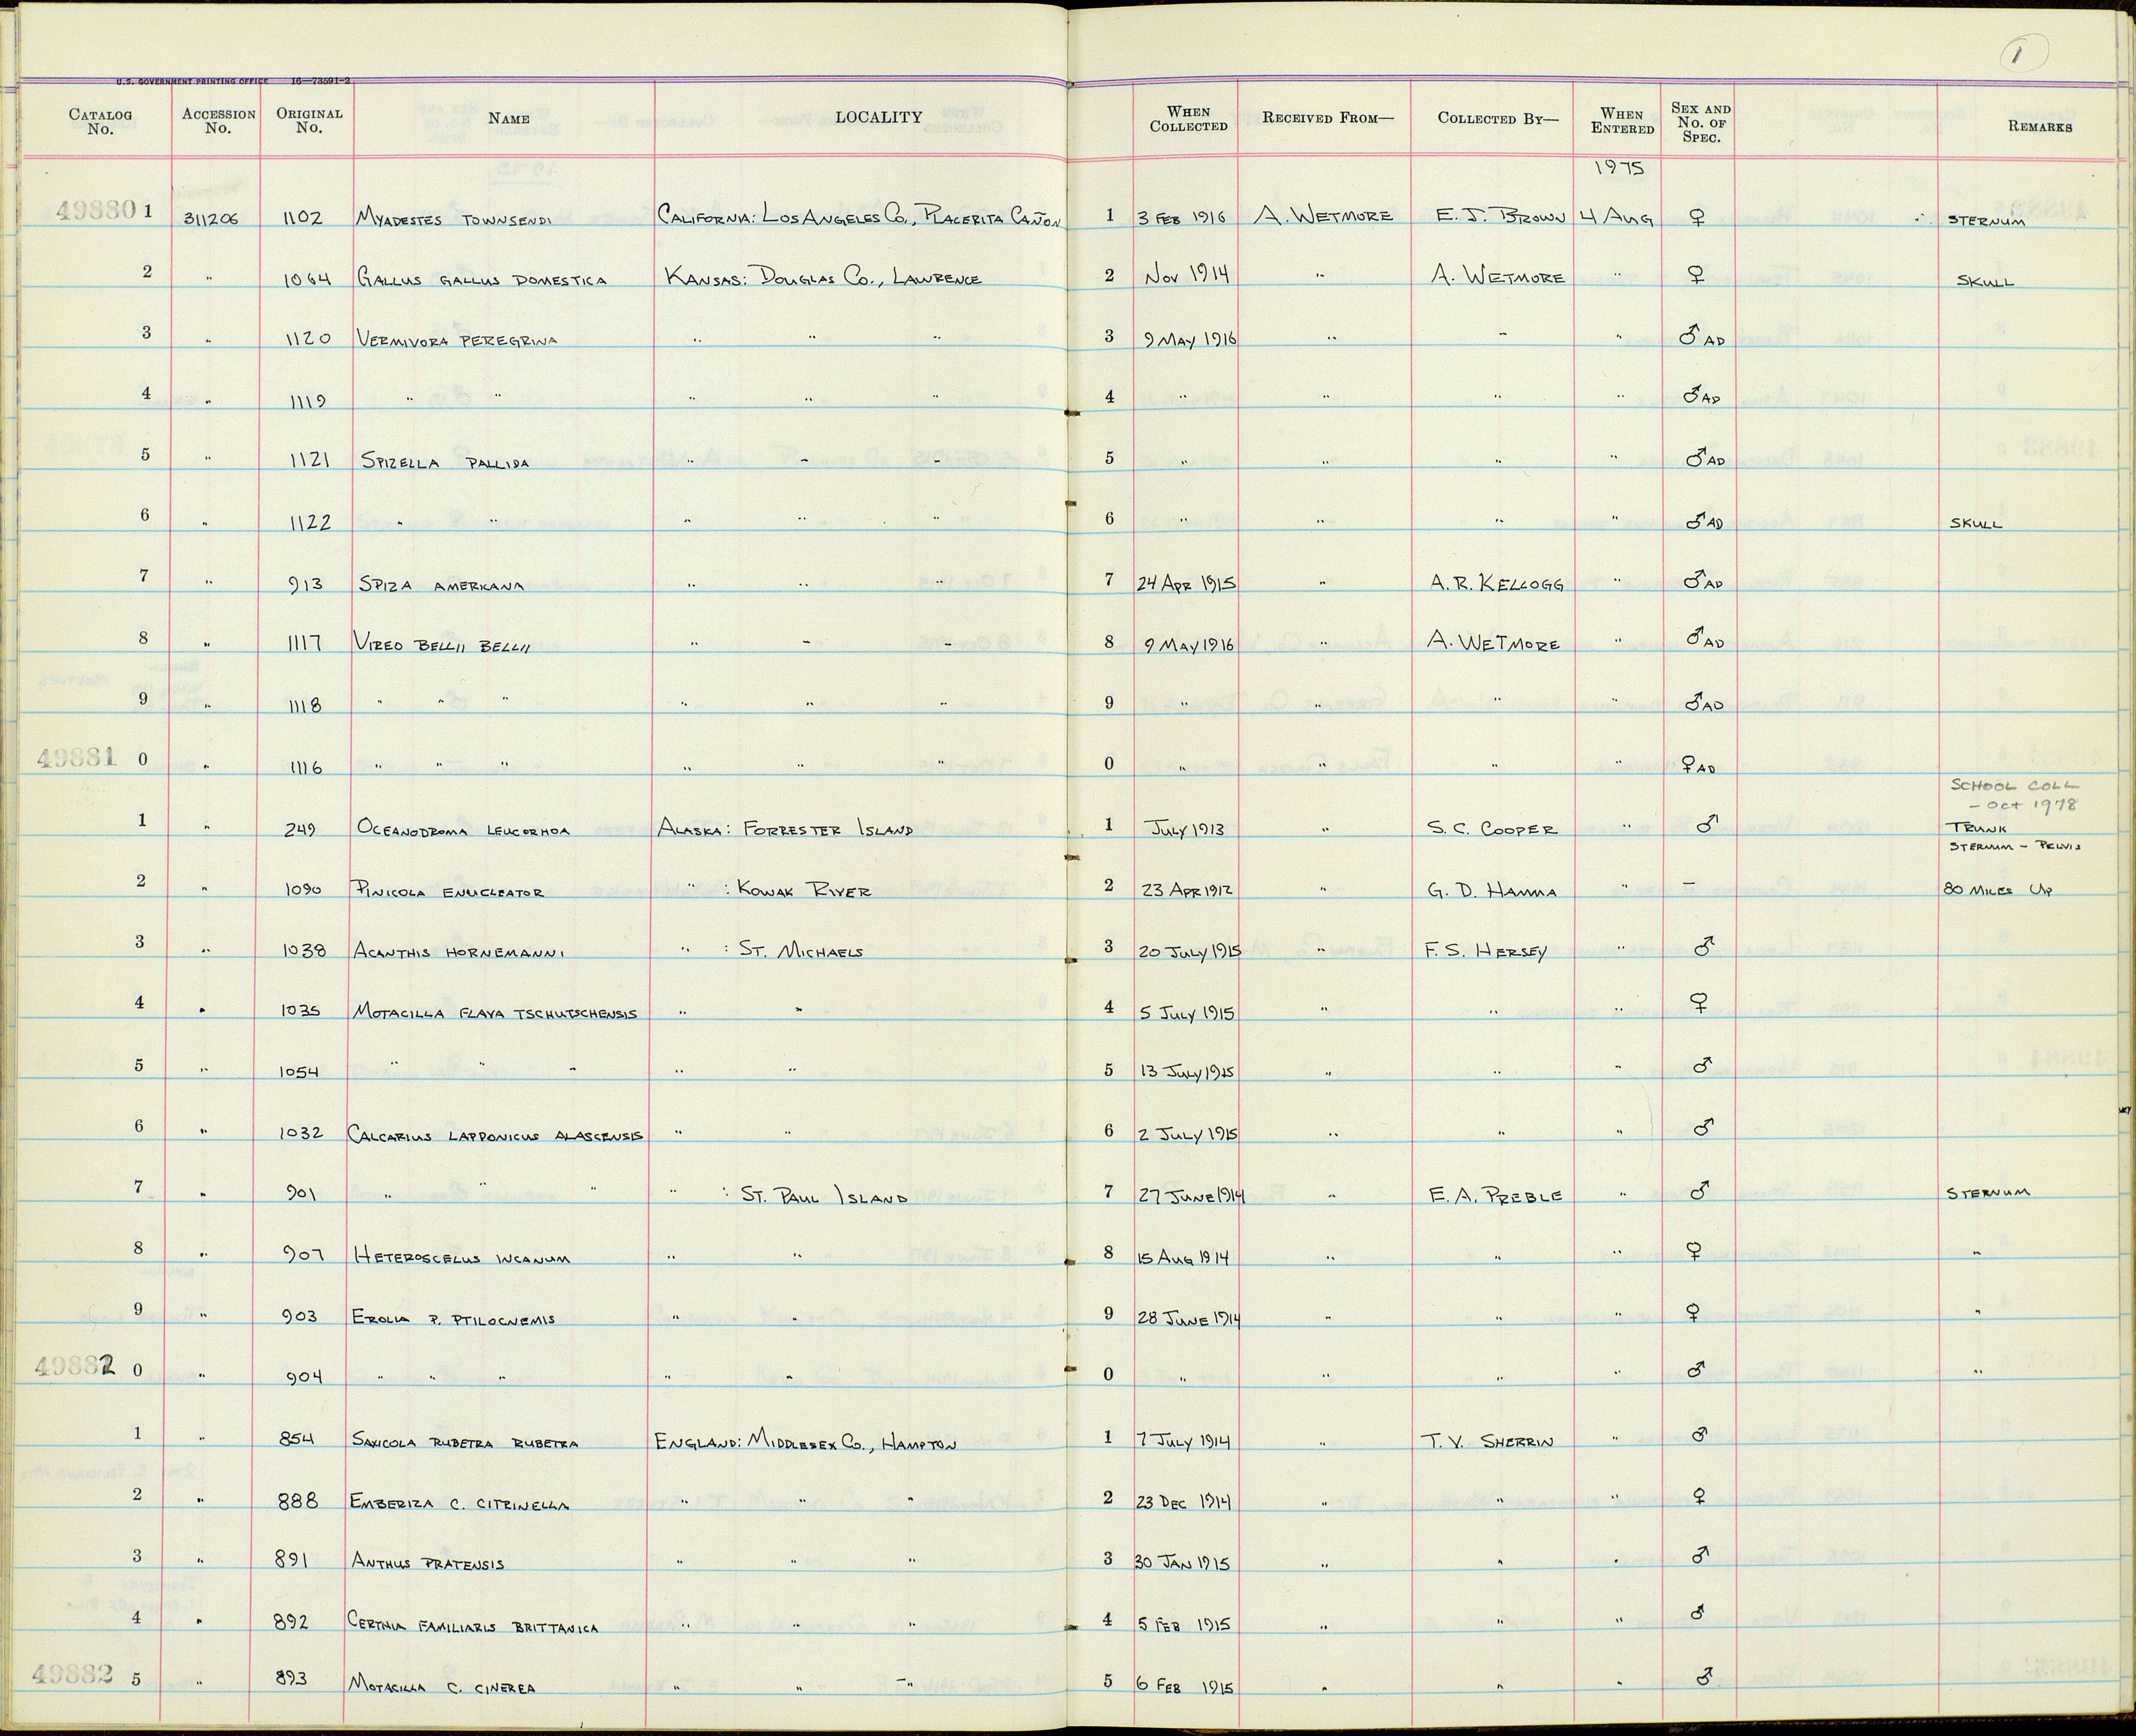 1
U.S. GOVERNMENT PRINTING OFFICE 16—73591-2
CATALOG No. ACCESSION No. ORIGINAL No. NAME LOCALITY WHEN COLLECTED RECEIVED FROM— COLLECTED BY— WHEN ENTERED SEX AND No. OF SPEC. REMARKS
1975
49880 1 311206 1102 MYADESTES TOWNSENDI CALIFORNIA: LOS ANGELES CO., PLACERITA CAÑON 1 3 FEB 1916 A. WETMORE E. J. BROWN 4 AUG ♀ STERNUM
2 " 1064 GALLUS GALLUS DOMESTICA KANSAS: DOUGLAS CO., LAWRENCE 2 NOV 1914 " A. WETMORE " ♀ SKULL
3 " 1120 VERMIVORA PEREGRINA " " " 3 9 MAY 1916 " " " ♂ AD
4 " 1119 " " " " " 4 " " " " ♂ AD
5 " 1121 SPIZELLA PALLIDA " " " 5 " " " " ♂ AD
6 " 1122 " " " " " 6 " " " " ♂ AD SKULL
7 " 913 SPIZA AMERICANA " " " 7 24 APR 1915 " A. R. KELLOGG " ♂ AD
8 " 1117 VIREO BELLII BELLII " " " 8 9 MAY 1916 " A. WETMORE " ♂ AD
9 " 1118 " " " " " " 9 " " " " ♂ AD
49881 0 " 1116 " " " " " " 0 " " " " ♀ AD
SCHOOL COLL
- OCT 1978
1 " 249 OCEANODROMA LEUCORHOA ALASKA: FORRESTER ISLAND 1 JULY 1913 " S. C. COOPER " ♂ TRUNK
STERNUM - PELVIS
2 " 1090 PINICOLA ENUCLEATOR " : KOWAK RIVER 2 23 APR 1912 " G. D. HANNA " — 80 MILES UP
3 " 1038 ACANTHIS HORNEMANNI " : ST. MICHAELS 3 20 JULY 1915 " F. S. HERSEY " ♂
4 " 1035 MOTACILLA FLAVA TSCHUTSCHENSIS " " 4 5 JULY 1915 " " " ♀
5 " 1054 " " " " " 5 13 JULY 1915 " " " ♂
6 " 1032 CALCARIUS LAPPONICUS ALASCENSIS " " 6 2 JULY 1915 " " " ♂
7 " 901 " " " " : ST. PAUL ISLAND 7 27 JUNE 1914 " E. A. PREBLE " ♂ STERNUM
8 " 907 HETEROSCELUS INCANUM " " 8 15 AUG 1914 " " " ♀ "
9 " 903 EROLIA P. PTILOCNEMIS " " 9 28 JUNE 1914 " " " ♀ "
49882 0 " 904 " " " " " 0 " " " " ♂ "
1 " 854 SAXICOLA RUBETRA RUBETRA ENGLAND: MIDDLESEX CO., HAMPTON 1 7 JULY 1914 " T. V. SHERRIN " ♂
2 " 888 EMBERIZA C. CITRINELLA " " " 2 23 DEC 1914 " " " ♀
3 " 891 ANTHUS PRATENSIS " " " 3 30 JAN 1915 " " " ♂
4 " 892 CERTHIA FAMILIARIS BRITTANICA " " " 4 5 FEB 1915 " " " ♂
49882 5 " 893 MOTACILLA C. CINEREA " " " 5 6 FEB 1915 " " " ♂